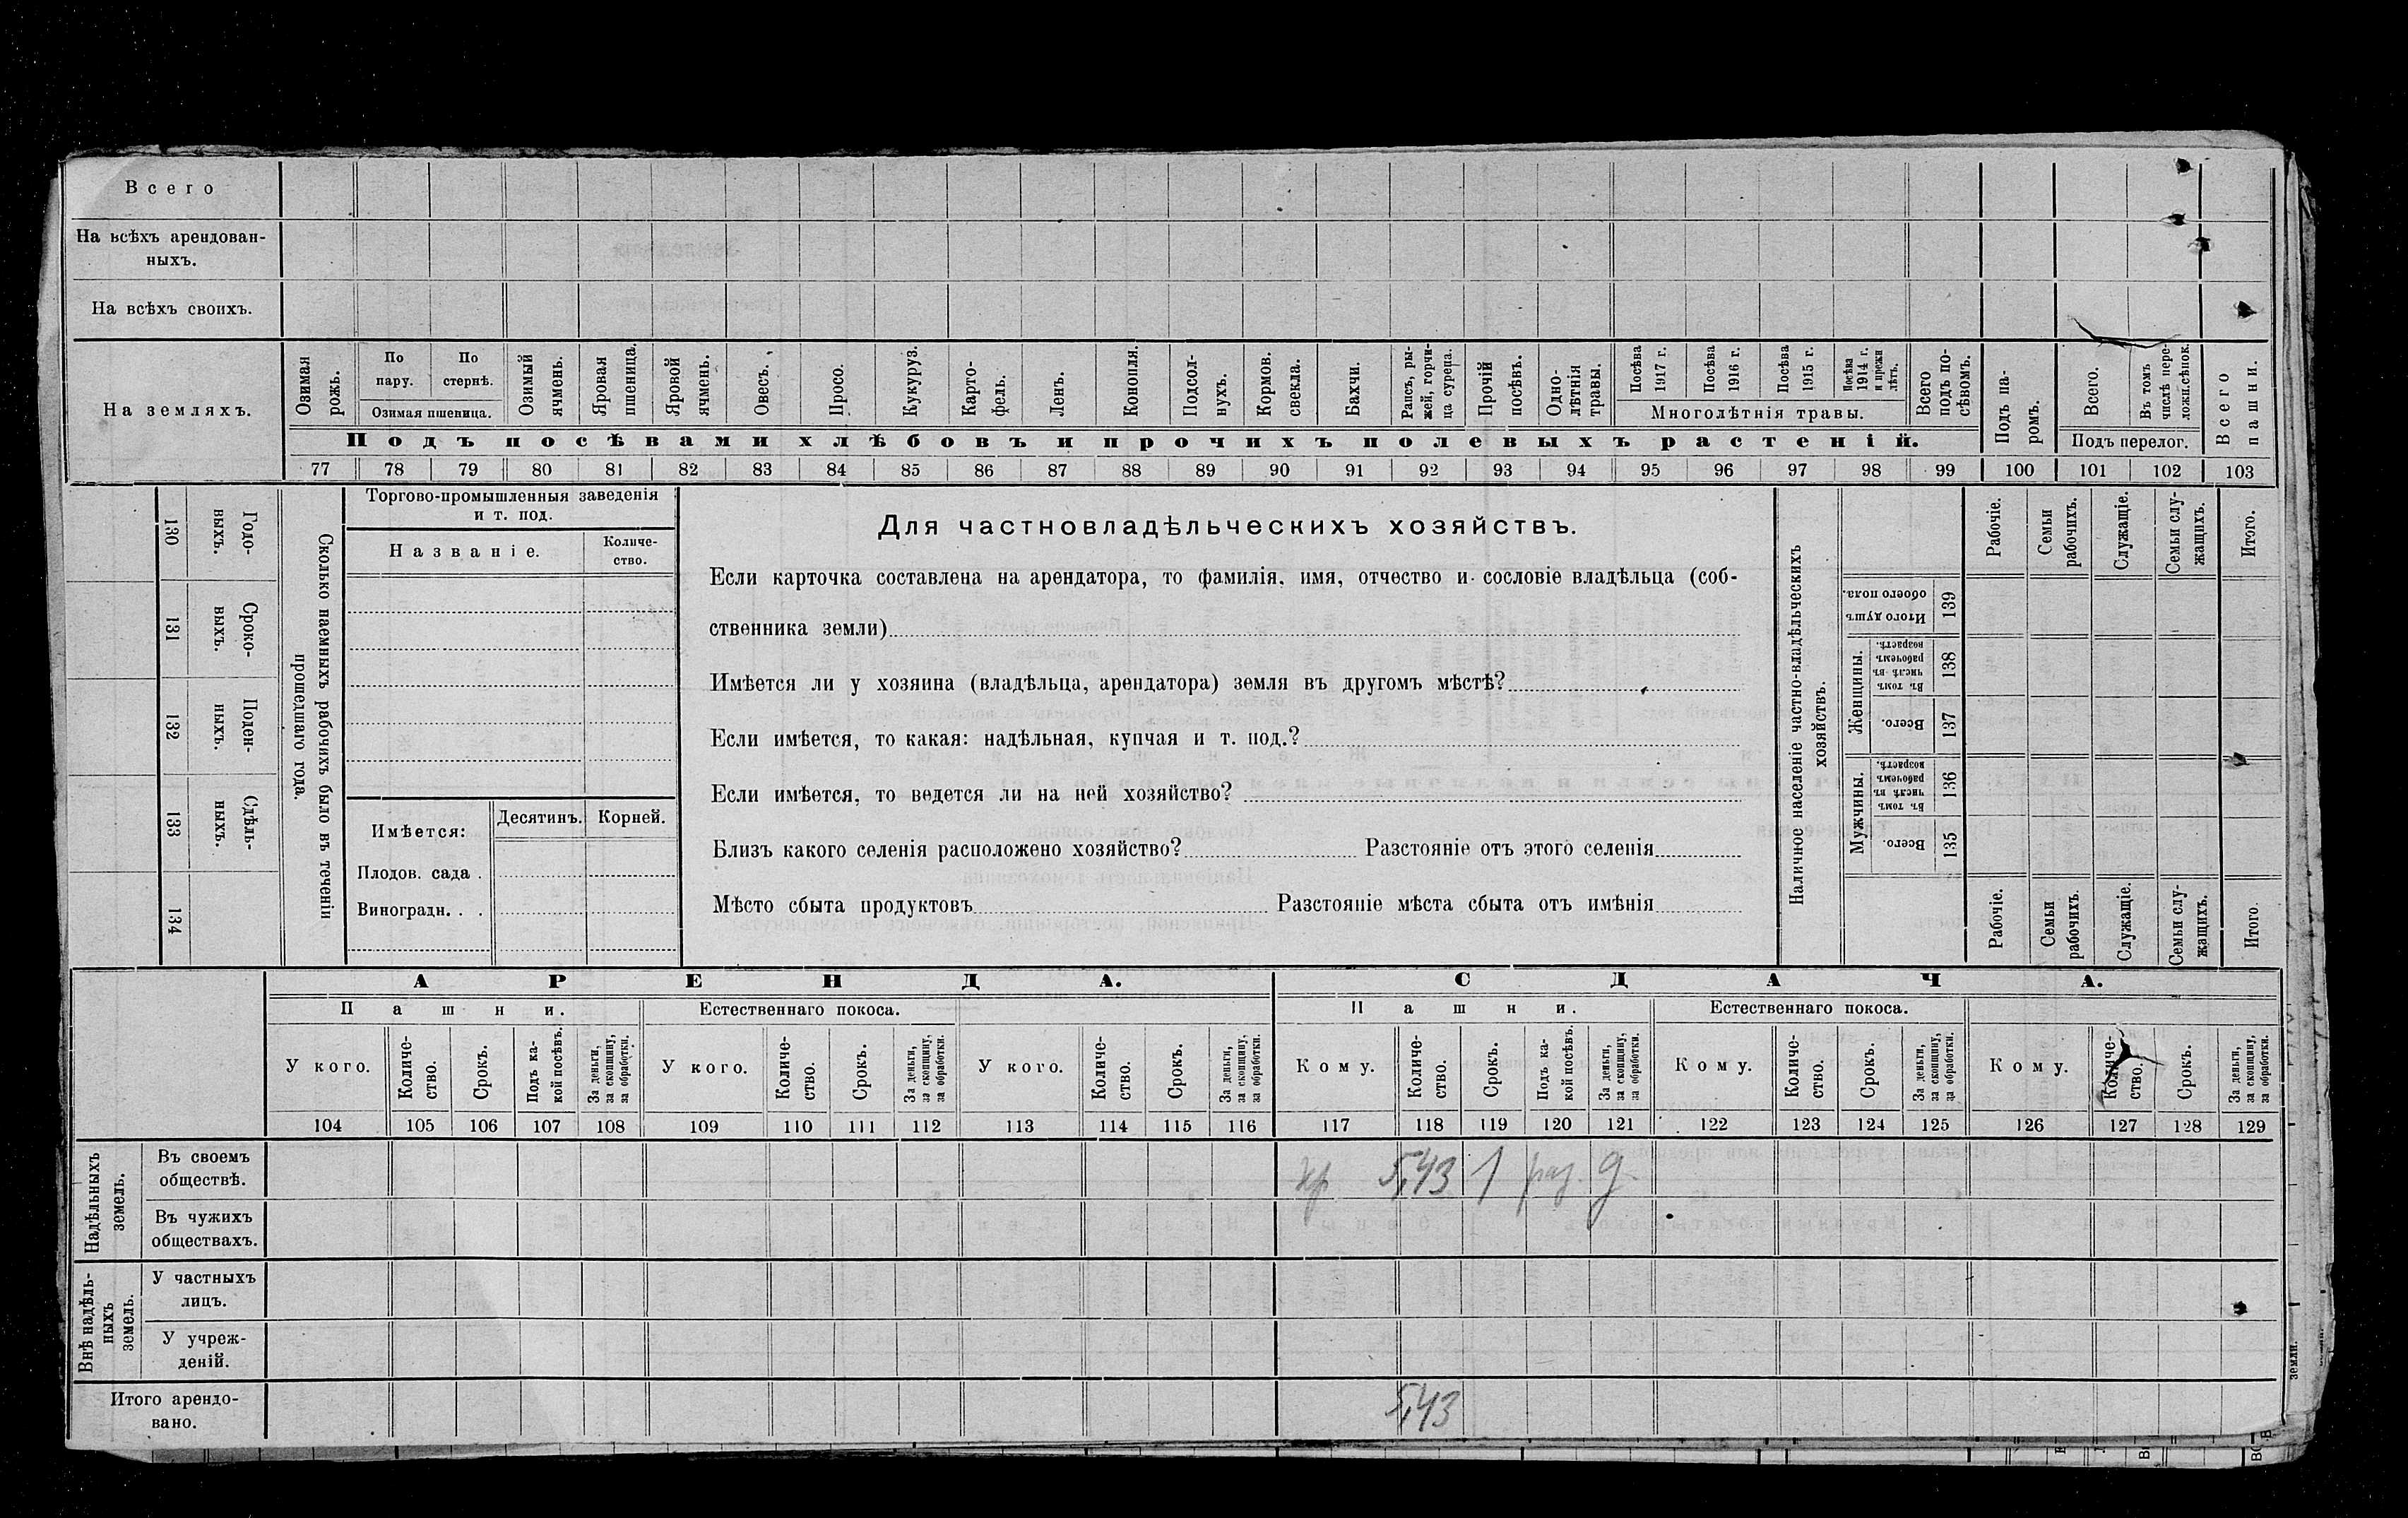 Всего
На всѣхъ арендован-
ныхъ.
На всѣхъ своихъ.
На земляхъ.
Озимая рожь.
По пару.
По стернѣ.
Озимая пшеница.
Озимый ячмень.
Яровая пшеница.
Яровой ячмень.
Овесъ.
Просо.
Кукуруз.
Карто-
фель.
Ленъ.
Конопля.
Подсол-
нухъ.
Кормов. свекла.
Бахчи.
Рапсъ, ры-
жей, горчи-
ца суреца.
Прочій посѣвъ.
Одно-
лѣтнія
травы.
Посѣва 1917 г.
Посѣва 1916 г.
Посѣва 1915 г.
Посѣва 1914 г. и прежн лѣтъ.
Многолѣтнія травы.
Всего подъ по-
сѣвомъ.
Подъ посѣвами хлѣбовъ и прочихъ полевыхъ растеній.
Подъ па-
ромъ.
Всего.
Въ томъ числѣ пере-
ложн.сѣнок.
Подъ перелог.
Всего пашни.
77 78 79 80 81 82 83 84 85 86 87 88 89 90 91 92 93 94 95 96 97 98 99 100 101 102 103
130 Годо-
выхъ.
131 Сроко-
выхъ.
132 Поден-
ныхъ.
133 Сдѣль-
ныхъ.
134
Сколько наемныхъ рабочихъ было въ теченіи
прошедшаго года.
Торгово-промышленныя заведенія
и т. под.
Названіе.
Количе-
ство.
Имѣется:
Десятинъ.
Корней.
Плодов. сада .
Виноградн. . .
Для частновладѣльческихъ хозяйствъ.
Если карточка составлена на арендатора, то фамилія, имя, отчество и сословіе владѣльца (соб-
ственника земли)
Имѣется ли у хозяина (владѣльца, арендатора) земля въ другомъ мѣстѣ?
Если имѣется, то какая: надѣльная, купчая и т. под.?
Если имѣется, то ведется ли на ней хозяйство?
Близъ какого селенія расположено хозяйство? Разстояніе отъ этого селенія
Мѣсто сбыта продуктовъ Разстояніе мѣста сбыта отъ имѣнія
Наличное населеніе частно-владѣльческихъ
хозяйствъ.
Рабочіе.
Семьи рабочихъ.
Служащіе.
Семьи слу-
жащихъ.
Итого.
Итого душъ обоего пола. 139
Женщины.
Въ томъ числѣ въ рабочемъ возрастѣ. 138
Всего. 137
Мужчины.
Въ томъ числѣ въ рабочемъ возрастѣ. 136
Всего. 135
Рабочіе.
Семьи рабочихъ.
Служащіе.
Семьи слу-
жащихъ.
Итого.
АРЕНДА.
СДАЧА.
Пашни.
Естественнаго покоса.
Пашни.
Естественнаго покоса.
У кого.
Количе-
ство.
Срокъ.
Подъ ка-
кой посѣвъ.
За деньги,
за скопщину,
за обработки.
У кого.
Количе-
ство.
Срокъ.
За деньги,
за скопщину,
за обработки.
У кого.
Количе-
ство.
Срокъ.
За деньги,
за скопщину,
за обработки.
Кому.
Количе-
ство.
Срокъ.
Подъ ка-
кой посѣвъ.
За деньги,
за скопщину,
за обработки.
Кому.
Количе-
ство.
Срокъ.
За деньги,
за скопщину,
за обработки.
Кому.
Количе-
ство.
Срокъ.
За деньги,
за скопщину,
за обработки.
104 105 106 107 108 109 110 111 112 113 114 115 116 117 118 119 120 121 122 123 124 125 126 127 128 129
Надѣльныхъ
земель.
Въ своемъ
обществѣ.
кр 5,43 1 раз. д
Въ чужихъ
обществахъ.
Внѣ надѣль-
ныхъ
земель.
У частныхъ
лицъ.
У учреж-
деній.
Итого арендо-
вано.
5,43
земли.